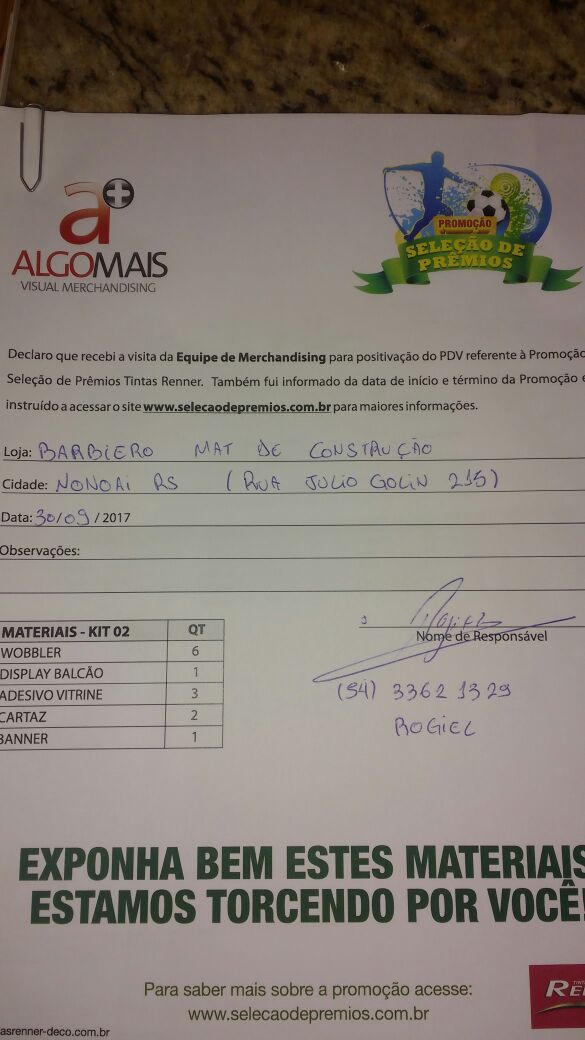 a+
ALGOMAIS
VISUAL MERCHANDISING
PROMOÇÃO
SELEÇÃO DE
PRÊMIOS
Declaro que recebi a visita da Equipe de Merchandising para positivação do PDV referente à Promoção
Seleção de Prêmios Tintas Renner. Também fui informado da data de início e término da Promoção e
instruído a acessar o site www.selecaodepremios.com.br para maiores informações.
Loja: BARBIERO MAT DE CONSTRUÇÃO
Cidade: NONOAI RS (RUA JULIO GOLIN 215)
Data: 30/09/2017
Observações:
Nome de Responsável
MATERIAIS - KIT 02 QT
WOBBLER 6
DISPLAY BALCÃO 1
ADESIVO VITRINE 3
CARTAZ 2
BANNER 1
(54) 3362 1329
ROGIEL
EXPONHA BEM ESTES MATERIAIS
ESTAMOS TORCENDO POR VOCÊ!
Para saber mais sobre a promoção acesse:
www.selecaodepremios.com.br
asrenner-deco.com.br